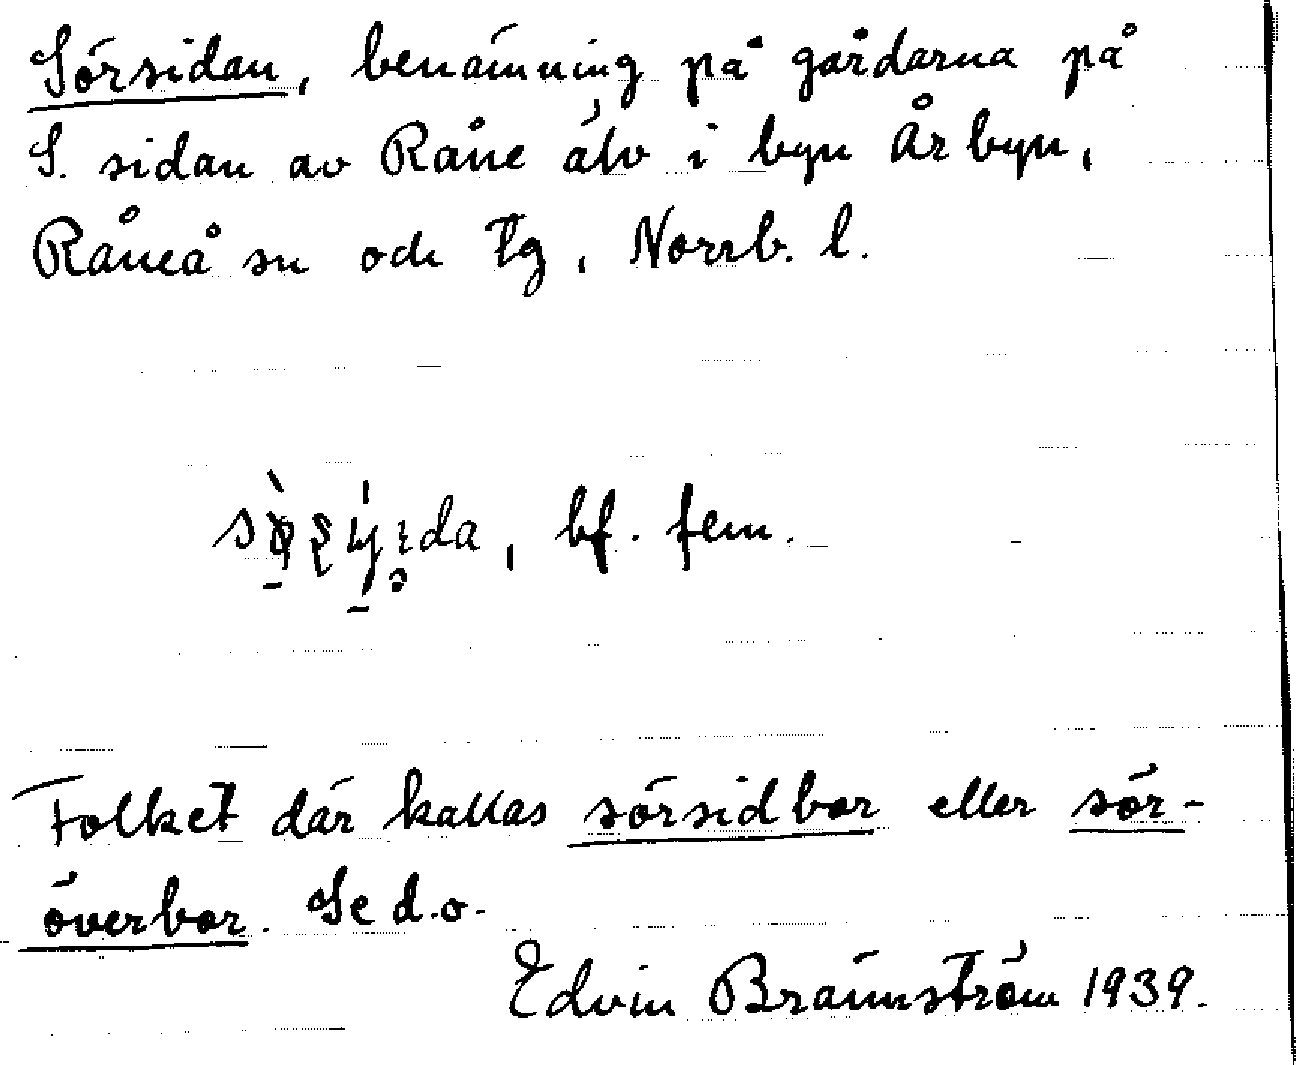 Sörsidan, benämning på gårdarna på
S. sidan av Råne älv i byn Årbyn,
Råneå sn och tg, Norrb. l.
bf. fem.
Folket där kallas sörsidbor eller sör-
överbor. Se d.o.
Edvin Brännström 1939.